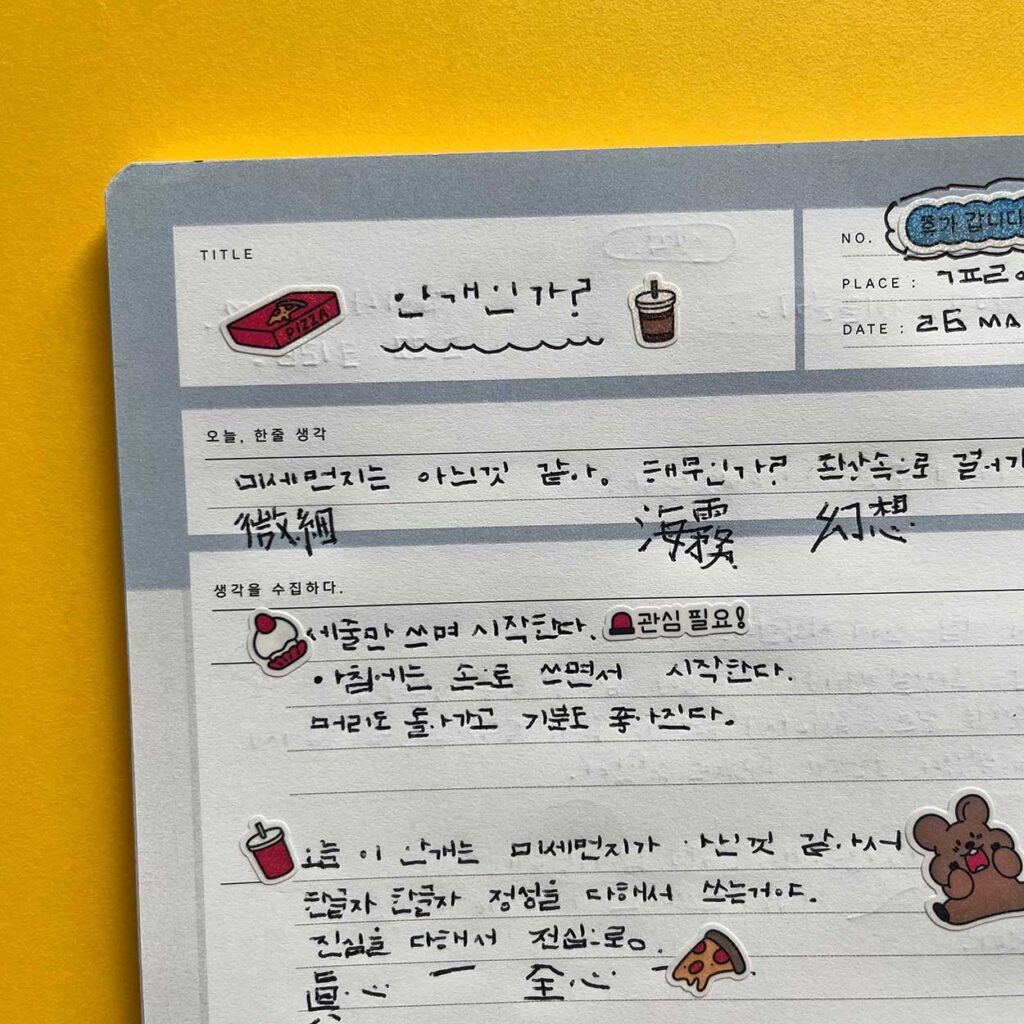 TITLE
PIZZA
안개인가?
NO. 호가 갑니다
PLACE :
DATE : 26 MA
오늘, 한줄 생각
미세먼지는 아닌것 같아. 해무인가? 환상속으로 걸어가
微細 海霧 幻想
생각을 수집하다.
세줄만 쓰며 시작한다. 관심 필요!
아침에는 손으로 쓰면서 시작한다.
머리도 돌아가고 기분도 좋아진다.
오늘 이 안개는 미세먼지가 아닌것 같아서
한글자 한글자 정성을 다해서 쓰는거야.
진심을 다해서 전심으로.
眞心 一 全心